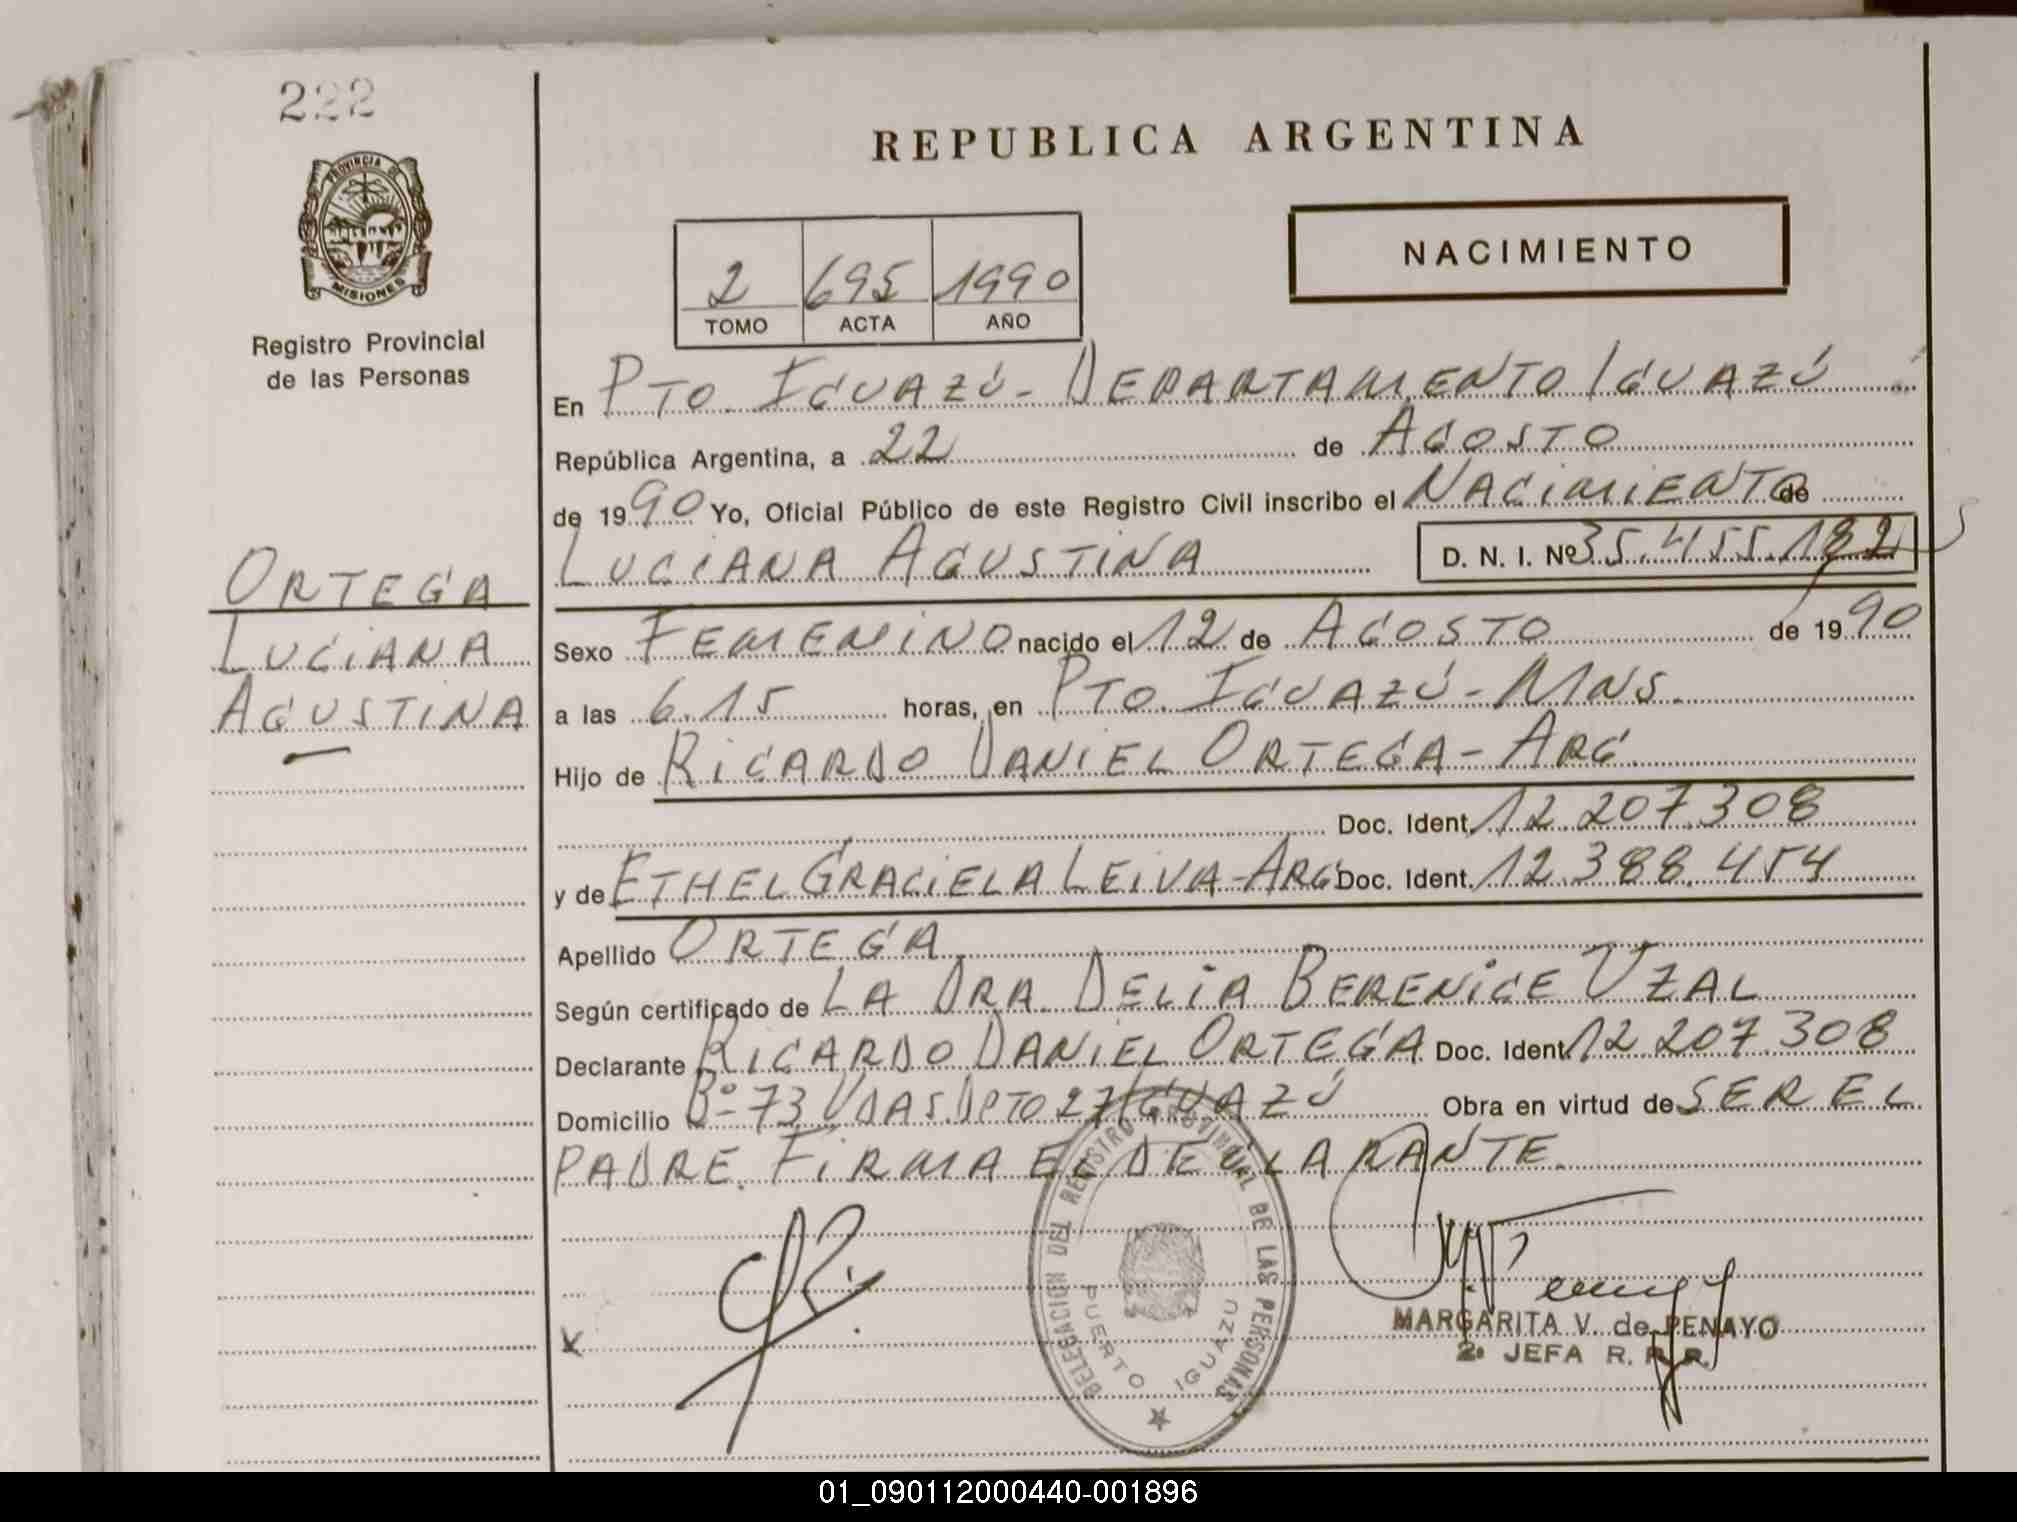 222
REPUBLICA ARGENTINA
PROVINCIA DE
MISIONES
Registro Provincial
de las Personas
2 695 1990
TOMO ACTA AÑO
NACIMIENTO
En PTO. IGUAZÚ - DEPARTAMENTO IGUAZÚ
República Argentina, a 22 de AGOSTO
de 1990 Yo, Oficial Público de este Registro Civil inscribo el NACIMIENTO de
LUCIANA AGUSTINA D. N. I. Nº 35.455.1
ORTEGA
LUCIANA
AGUSTINA
Sexo FEMENINO nacido el 12 de AGOSTO de 1990
a las 6.15 horas, en PTO. IGUAZÚ - MNS.
Hijo de RICARDO DANIEL ORTEGA - ARG.
Doc. Ident. 12.207.308
y de ETHEL GRACIELA LEIVA - ARG Doc. Ident. 12.388.454
Apellido ORTEGA
Según certificado de LA DRA. DELIA BERENICE UZAL
Declarante RICARDO DANIEL ORTEGA Doc. Ident. 12.207.308
Domicilio Bº 73 VDAS. DPTO 27 IGUAZÚ Obra en virtud de SER EL
PADRE. FIRMA EL DECLARANTE.
DELEGACION DEL REGISTRO PROVINCIAL DE LAS PERSONAS
PUERTO IGUAZU
X
MARGARITA V. de PENAYO
2º JEFA R. P. P.
01_090112000440-001896